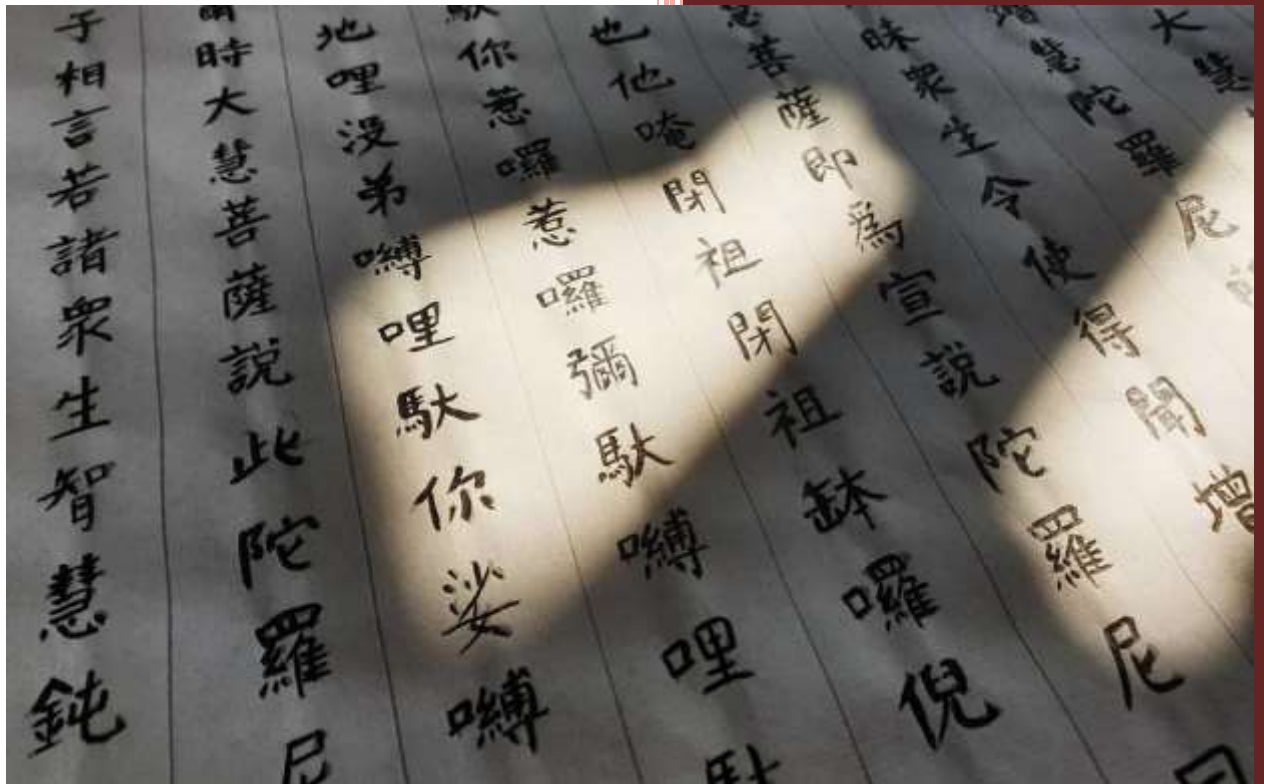 大慧
增慧陀羅尼
昧衆生令使得聞增
慧菩薩即爲宣說陀羅尼
也他唵閉祖閉祖缽囉倪
馱你惹囉惹囉彌馱嚩哩馱
地哩没弟嚩哩馱你娑嚩
時大慧菩薩說此陀羅尼
子相言若諸衆生智慧鈍